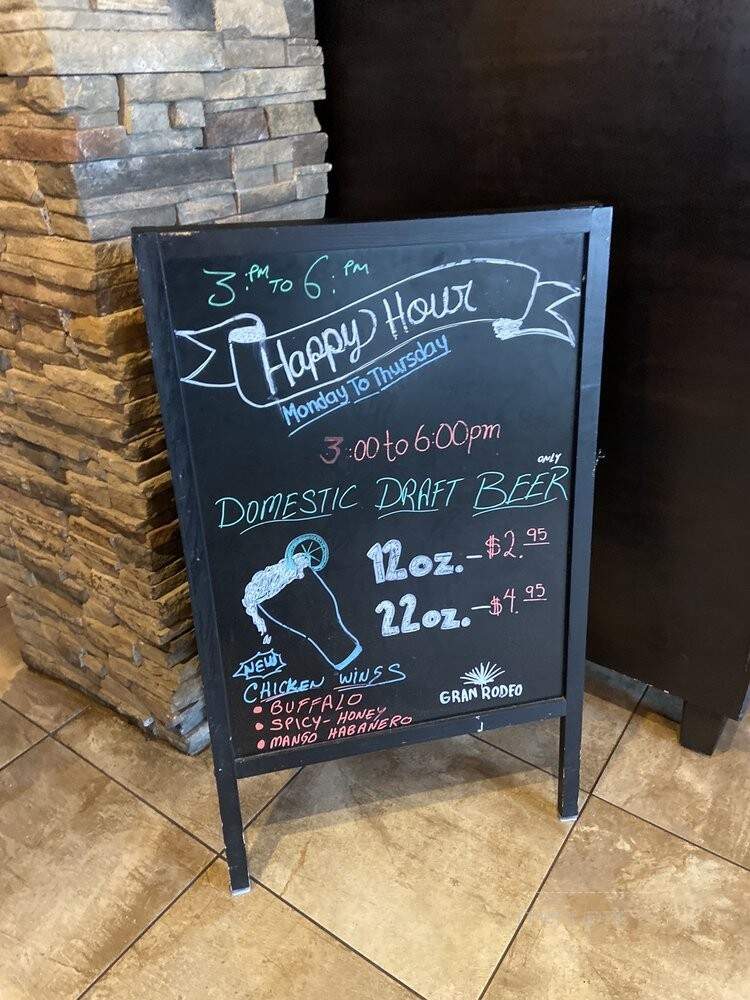 3:PM TO 6:PM
Happy Hour
Monday To Thursday
3:00 to 6:00pm
ONLY
DOMESTIC DRAFT BEER
12oz. - $2.95
22oz. - $4.95
NEW
CHICKEN WINGS
• BUFFALO
• SPICY-HONEY
• MANGO HABANERO
GRAN RODEO